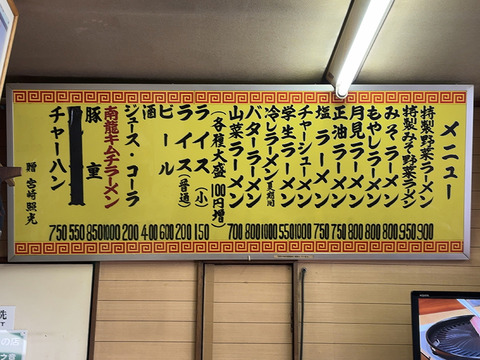 メニュー
特製野菜ラーメン 900
特製みそ野菜ラーメン 950
みそラーメン 800
もやしラーメン 800
月見ラーメン 800
正油ラーメン 750
塩ラーメン 750
チャーシューメン 1000
学生ラーメン 550
冷しラーメン 夏期間 1000
バターラーメン 800
山菜ラーメン 700
(各種大盛100円増)
ライス(小) 150
ライス(普通) 200
ビール 600
酒 400
ジュース・コーラ 200
南龍キムチラーメン 1000
豚重 850
550
チャーハン 750
贈 宮崎照光